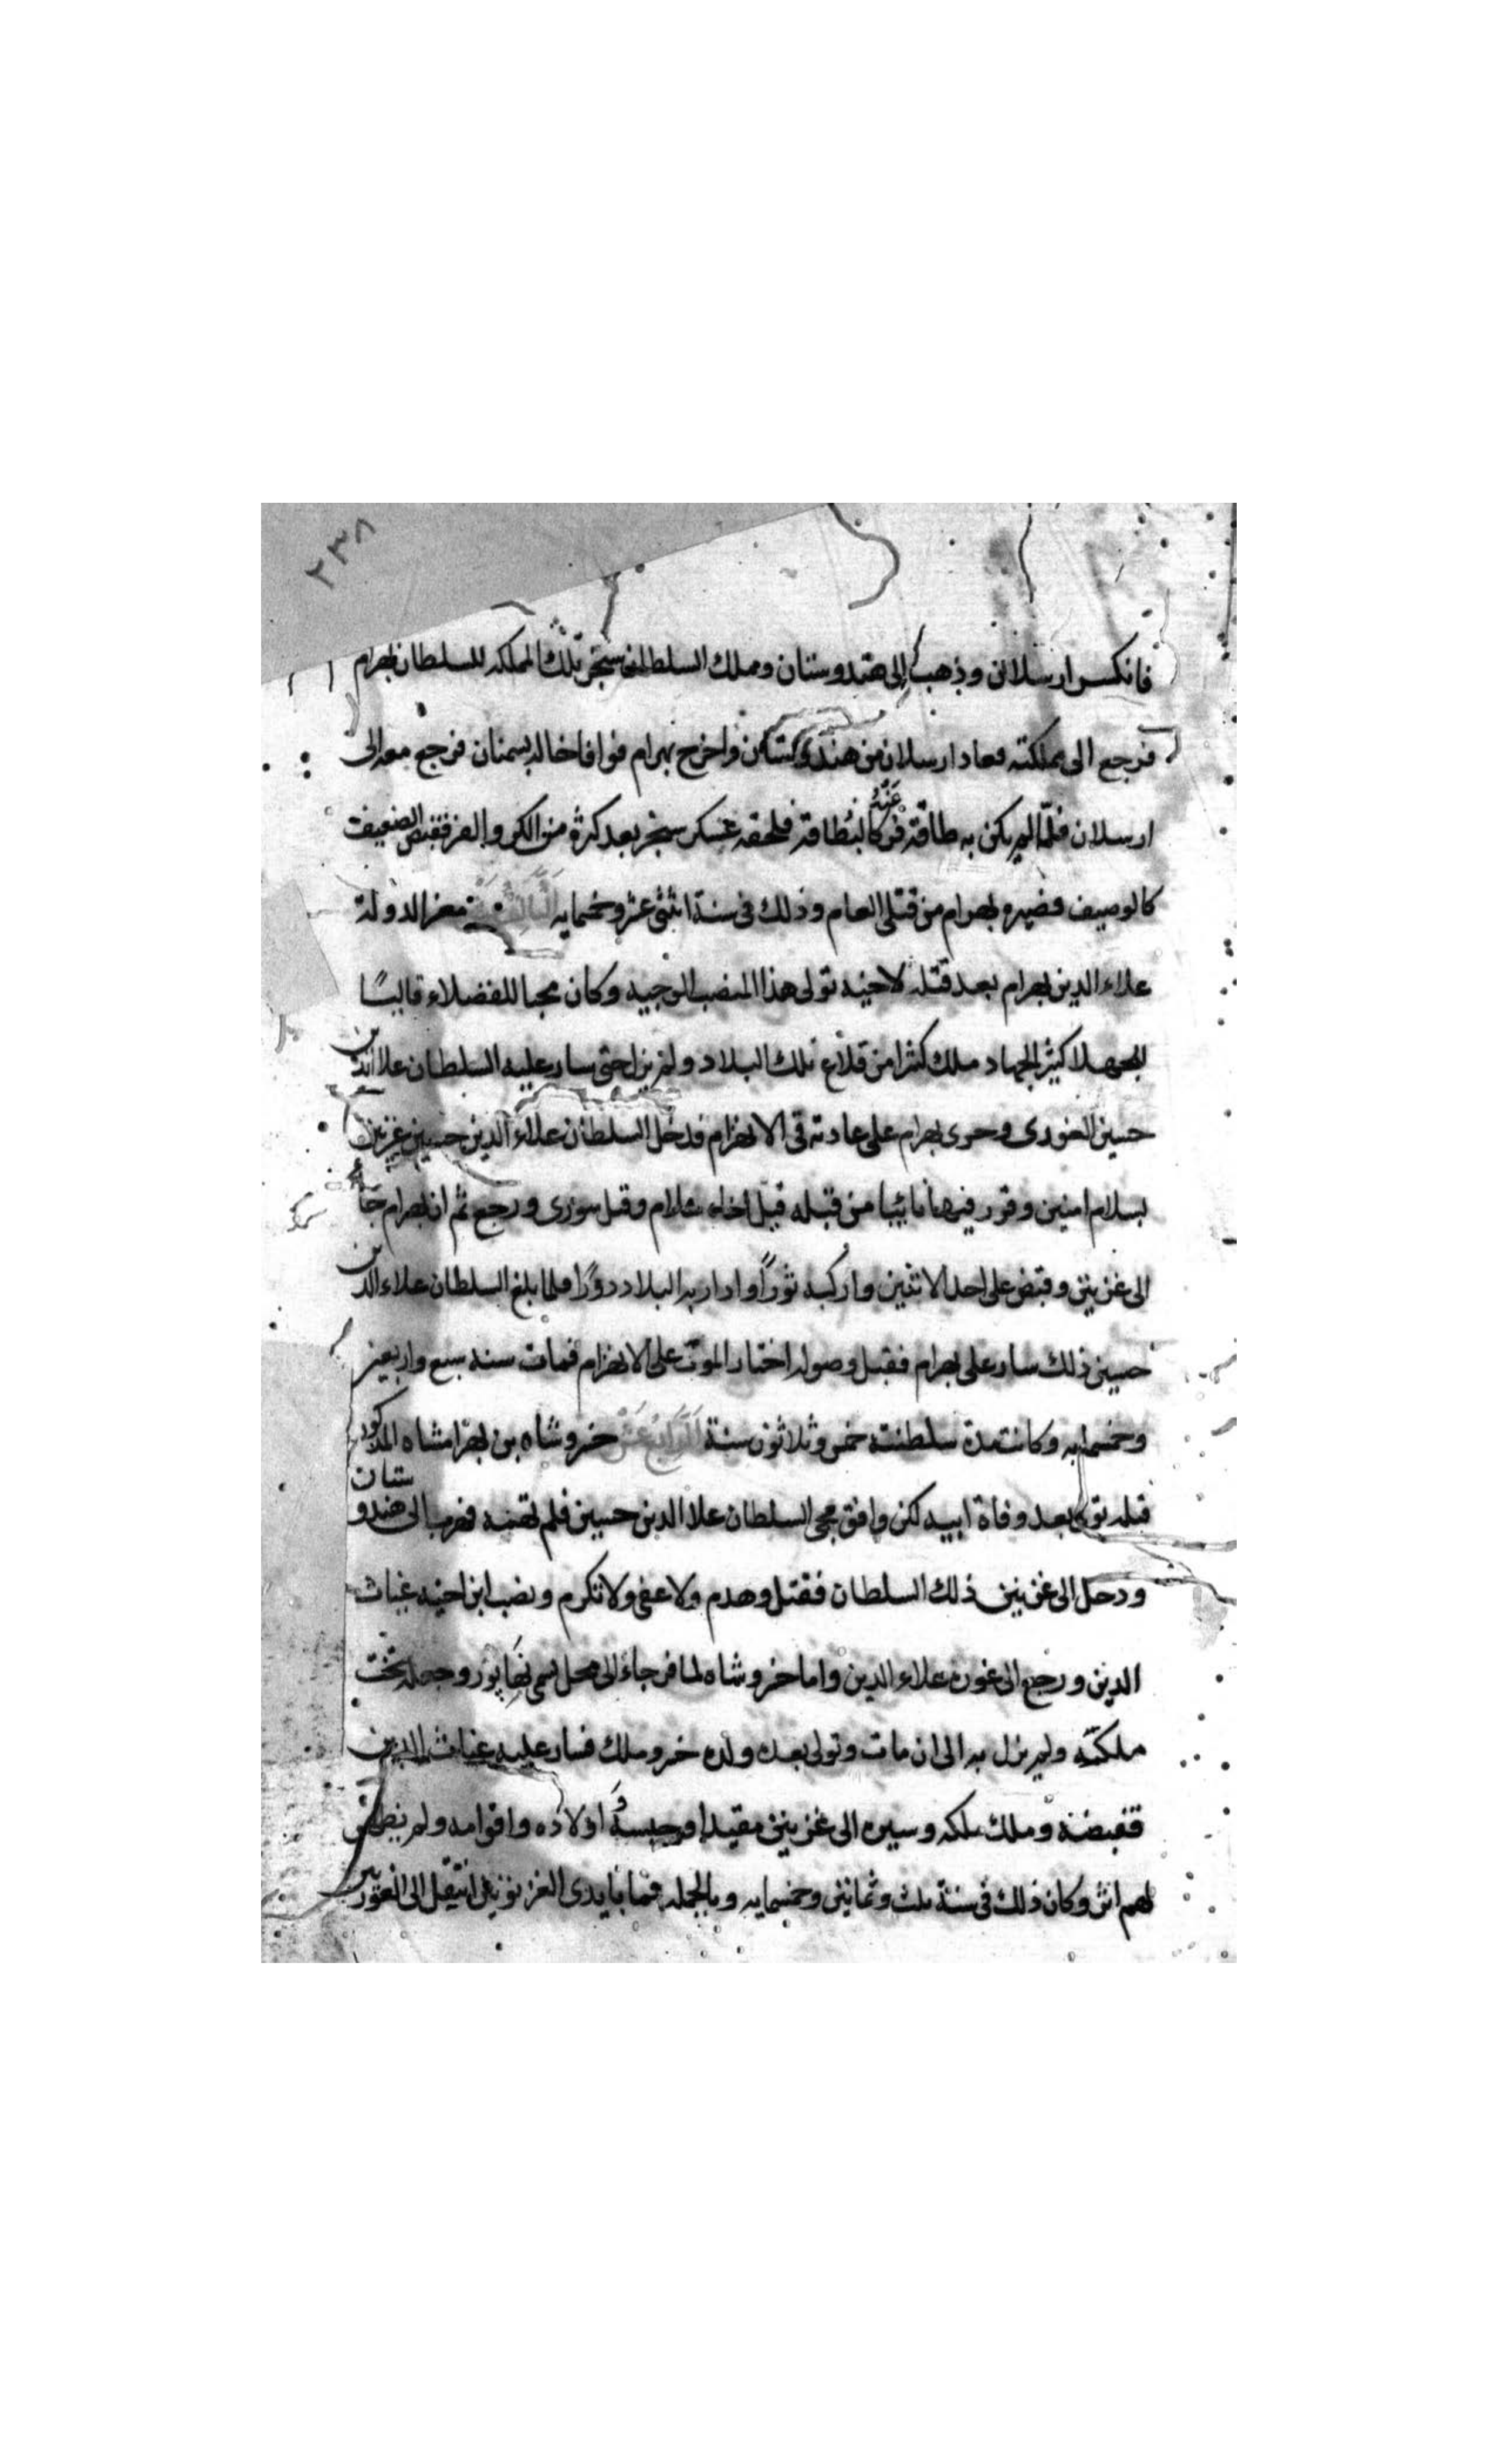 ٢٣٨
فانكسر ارسلان وذهب الى هندوستان وملك السلطان سنجر تلك المملكه للسلطان بهرام
فرجع الى مملكته فعاد ارسلان من هندوستان واخرج بهرام فوافا خاله بسمنان فرجع معه الى
ارسلان فلمّا لم يكن به طاقة فركا فلحقه عسكر سنجر بعد كرة من الكر و الفر فقبض الضعيف
كالوصيف فصيره بهرام من قتلى العام وذلك فى سنة اثنى عشر وخمسمايه الثالث عشر معز الدولة
علاء الدين بهرام بعد قتله لاخيه تولى هذا المنصب الوجيه وكان محبا للفضلاء
للجهلا كثير الجهاد ملك كثيرا من قلاع تلك البلاد ولم يزل حتى سار عليه السلطان علا الدين
حسين الغورى وجرى بهرام على عادته فى الانهزام فدخل السلطان علاء الدين حسين غزنين
بسلام امنين وقرر فيها نايبا من قبله قيل اخاه وقيل سورى ورجع ثم ان بهرام جاء
الى غزنين وقبض على احد الاثنين واركبه ثورًا وادار به البلاد دورًا فلما بلغ السلطان علاء الدين
حسين ذلك سار على بهرام فقبل وصوله اختار الموت على الانهزام فمات سنه سبع واربعين
وخمسمايه وكانت مدة سلطنته خمس وثلاثون سنة الرابع عشر خسرو شاه بن بهرامشاه المذكور
قبله تولى بعد وفاة ابيه لكن وافق مجى السلطان علا الدين حسين فلم تهنه فهرب الى هندوستان
ودخل الى غزنين ذلك السلطان فقتل وهدم ولا عفى ولا تكرم ونصب ابن اخيه غياث
الدين ورجع الى غوره علاء الدين واما خسرو شاه لما فر جاء الى محل يسمى وجعله تخت
ملكته ولم يزل به الى ان مات وتولى بعده ولده خسرو ملك فسار عليه غياث الدين
فقبضه وملك ملكه وسيره الى غزنين مقيدا وحبسه و اولاده واقوامه ولم يظهر
لهم اثر وكان ذلك فى سنة ثلث وثمانين وخمسمايه وبالجمله فما بايدى الغزنويين انتقل الى الغوريين